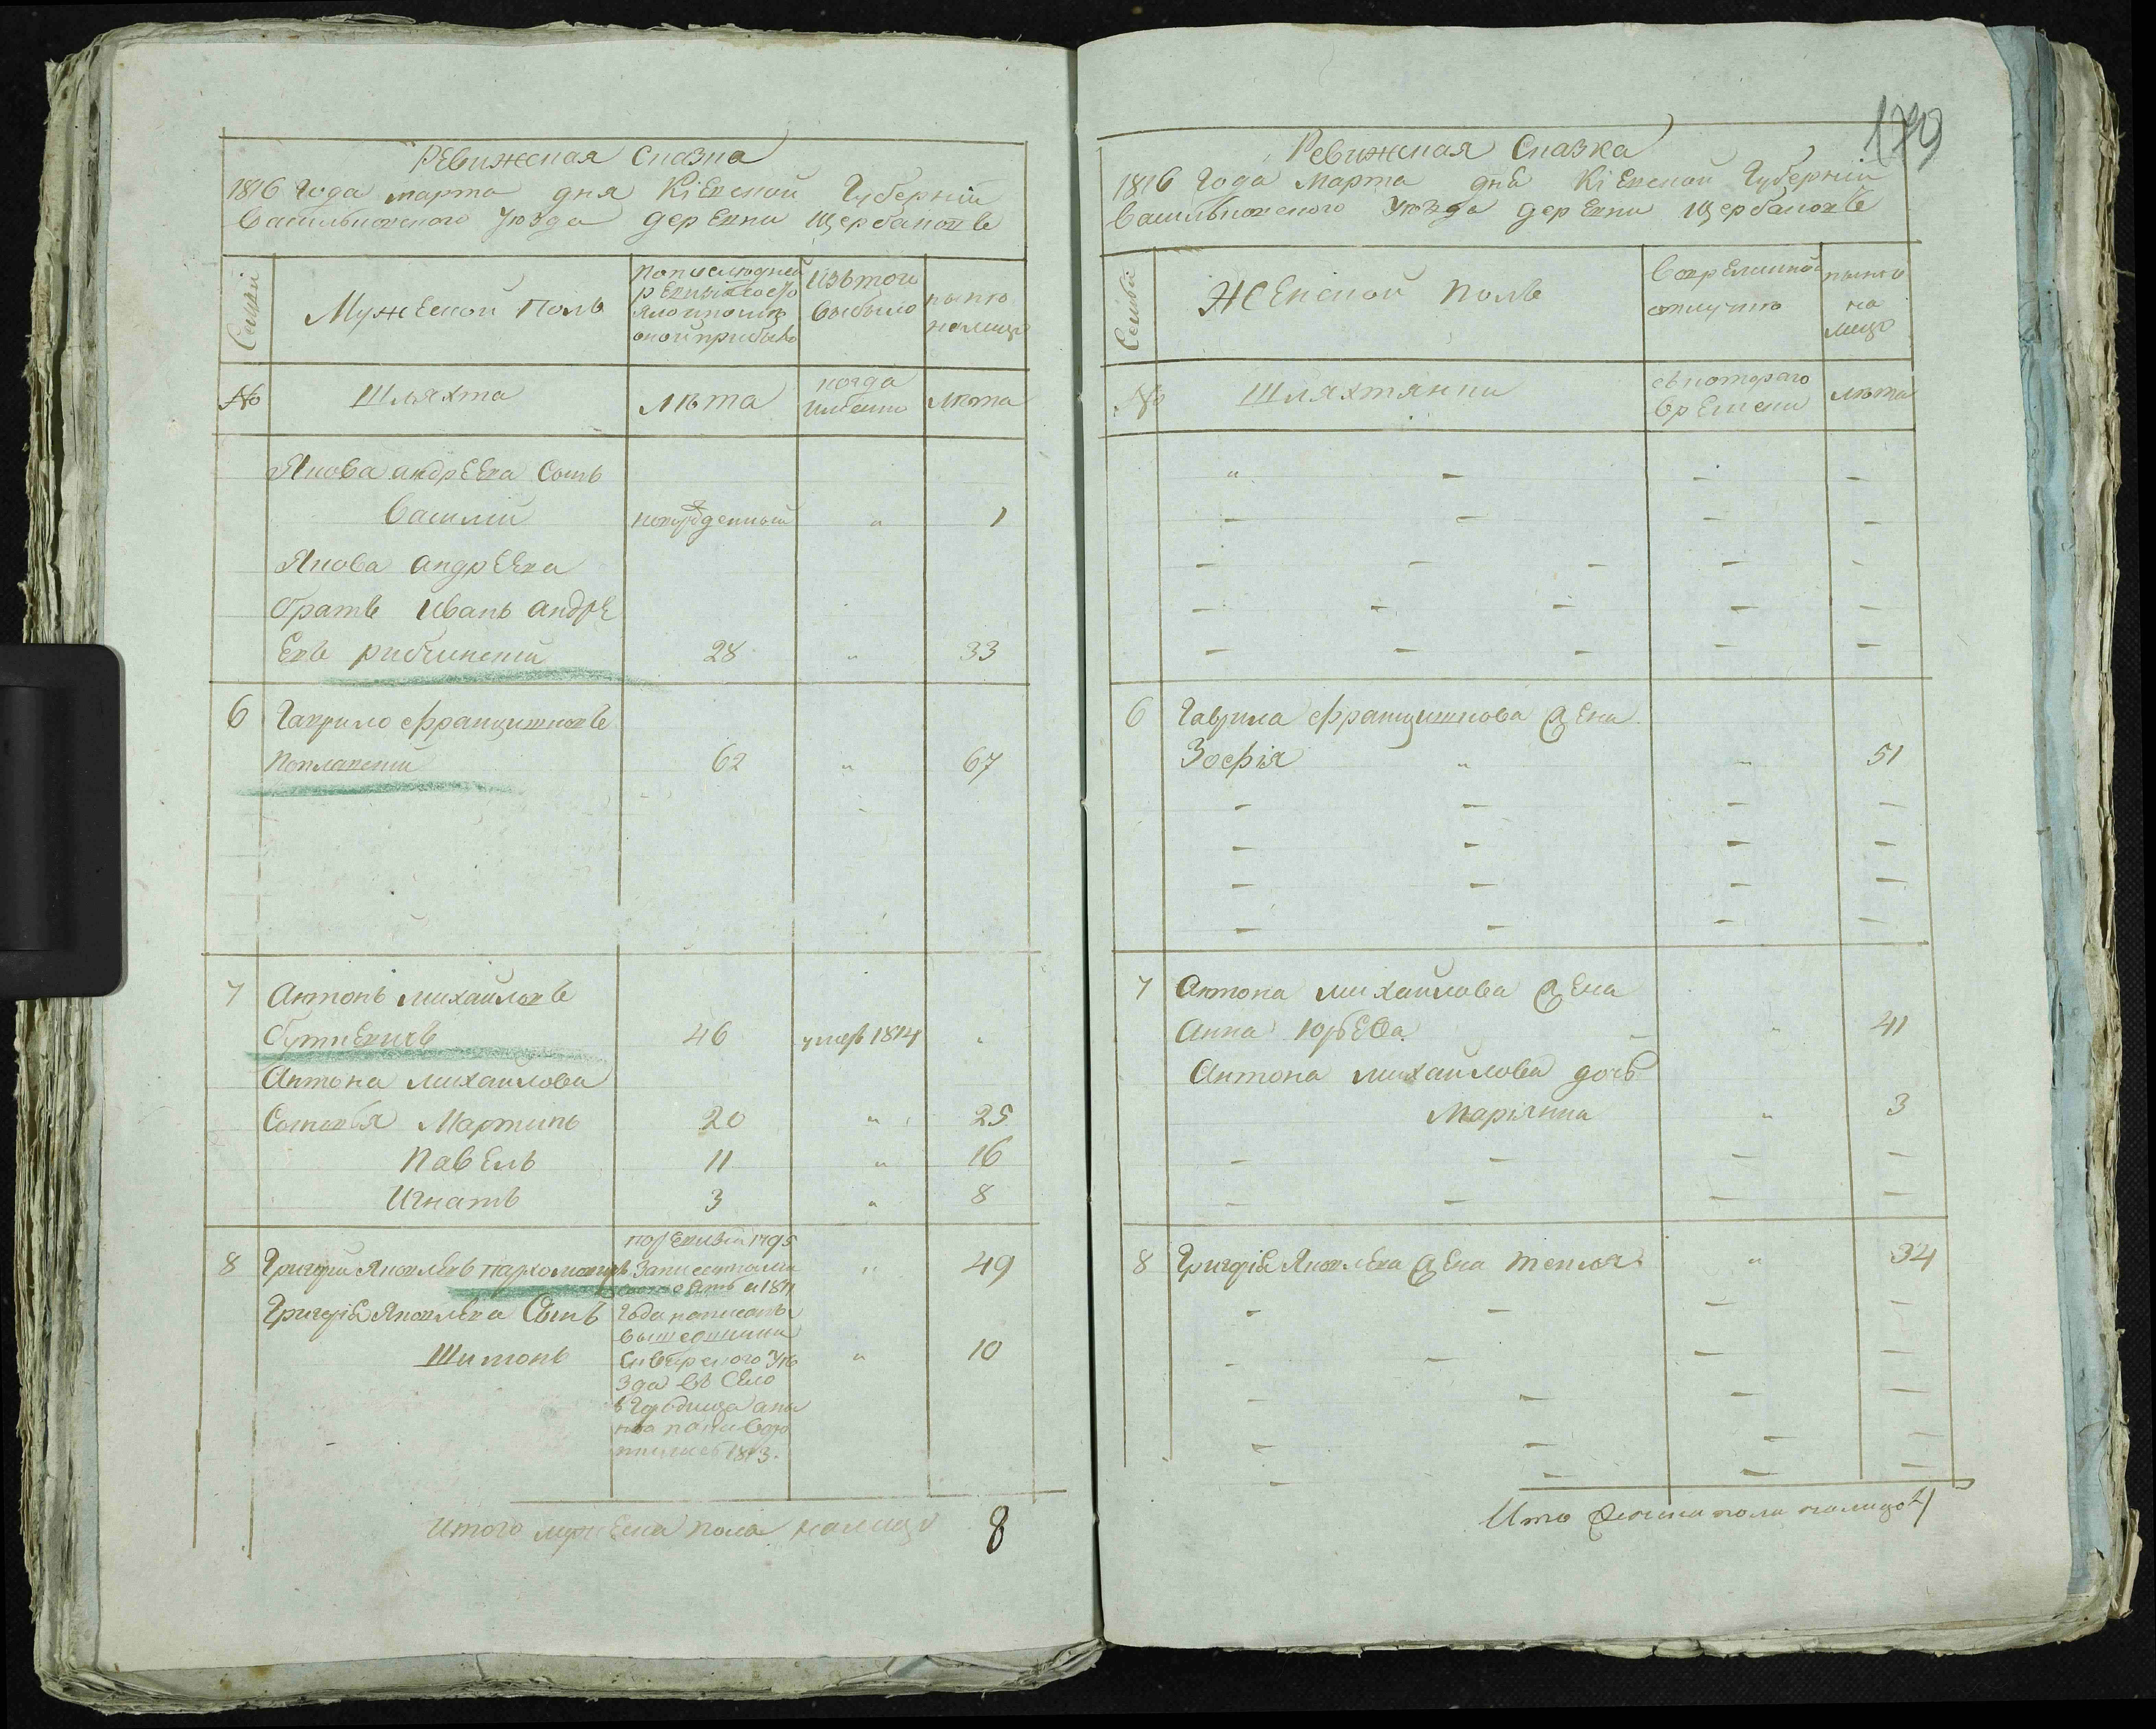 Ревижская Сказка
1816 Года марта дня Кіевской Губерніи
Васильковского Уюзда деревни Щербановъ
Семьи
Мужеской полъ
По последней
ревизіи состо
яло и после
оной прибыло
Изътого
выбыло
ныню
налицо
№
Шляхта
Люта
когда
имянно
Люта
Якова андреева Сынъ
Василій
новорожденный " 1
Якова андреева
братъ Иванъ андре
евъ 28 " 33
6 Гаврило Францишковъ
62 " 67
7 Антонъ михайловъ
46 умеръ 1814 "
Антона михайлова
Сыновья Мартинъ 20 " 25
Павелъ 11 " 16
Игнатъ 3 " 8
8 Григорій Яковлевъ Пархомовичъ " 49
По ревизіи 1795
Григорія Яковлева Сынъ
Шимонъ " 10
года написанъ
уюз
зда въ село
1813.
Итого мужеска пола налицо 8
179
Ревижская Сказка
1816 Года Марта дня Кіевской Губерніи
Васильковского Уюзда деревни Щербановъ
Семьи
Женской полъ
Во временной
отлучке
ныню
на
лицо
№
Шляхтянки
съ котораго
времени
люта
6 Гаврила Францишкова жена
Зофія " " 51
7 Антона михайлова жена
Анна Юрьева " 41
Антона михайлова дочь
Маріянна " 3
8 Григорія Яковлева жена Текля " 34
Итого женска пола налицо 4